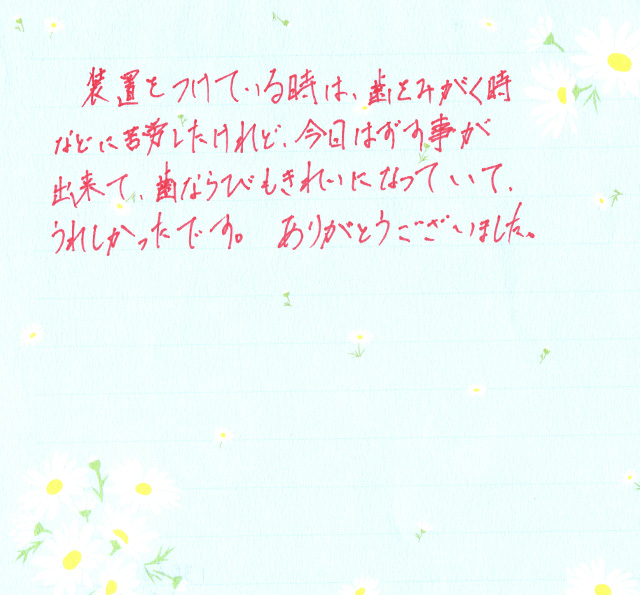 装置をつけている時は、歯をみがく時
などに苦労したけれど、今日はずす事が
出来て、歯ならびもきれいになっていて、
うれしかったです。 ありがとうございました。